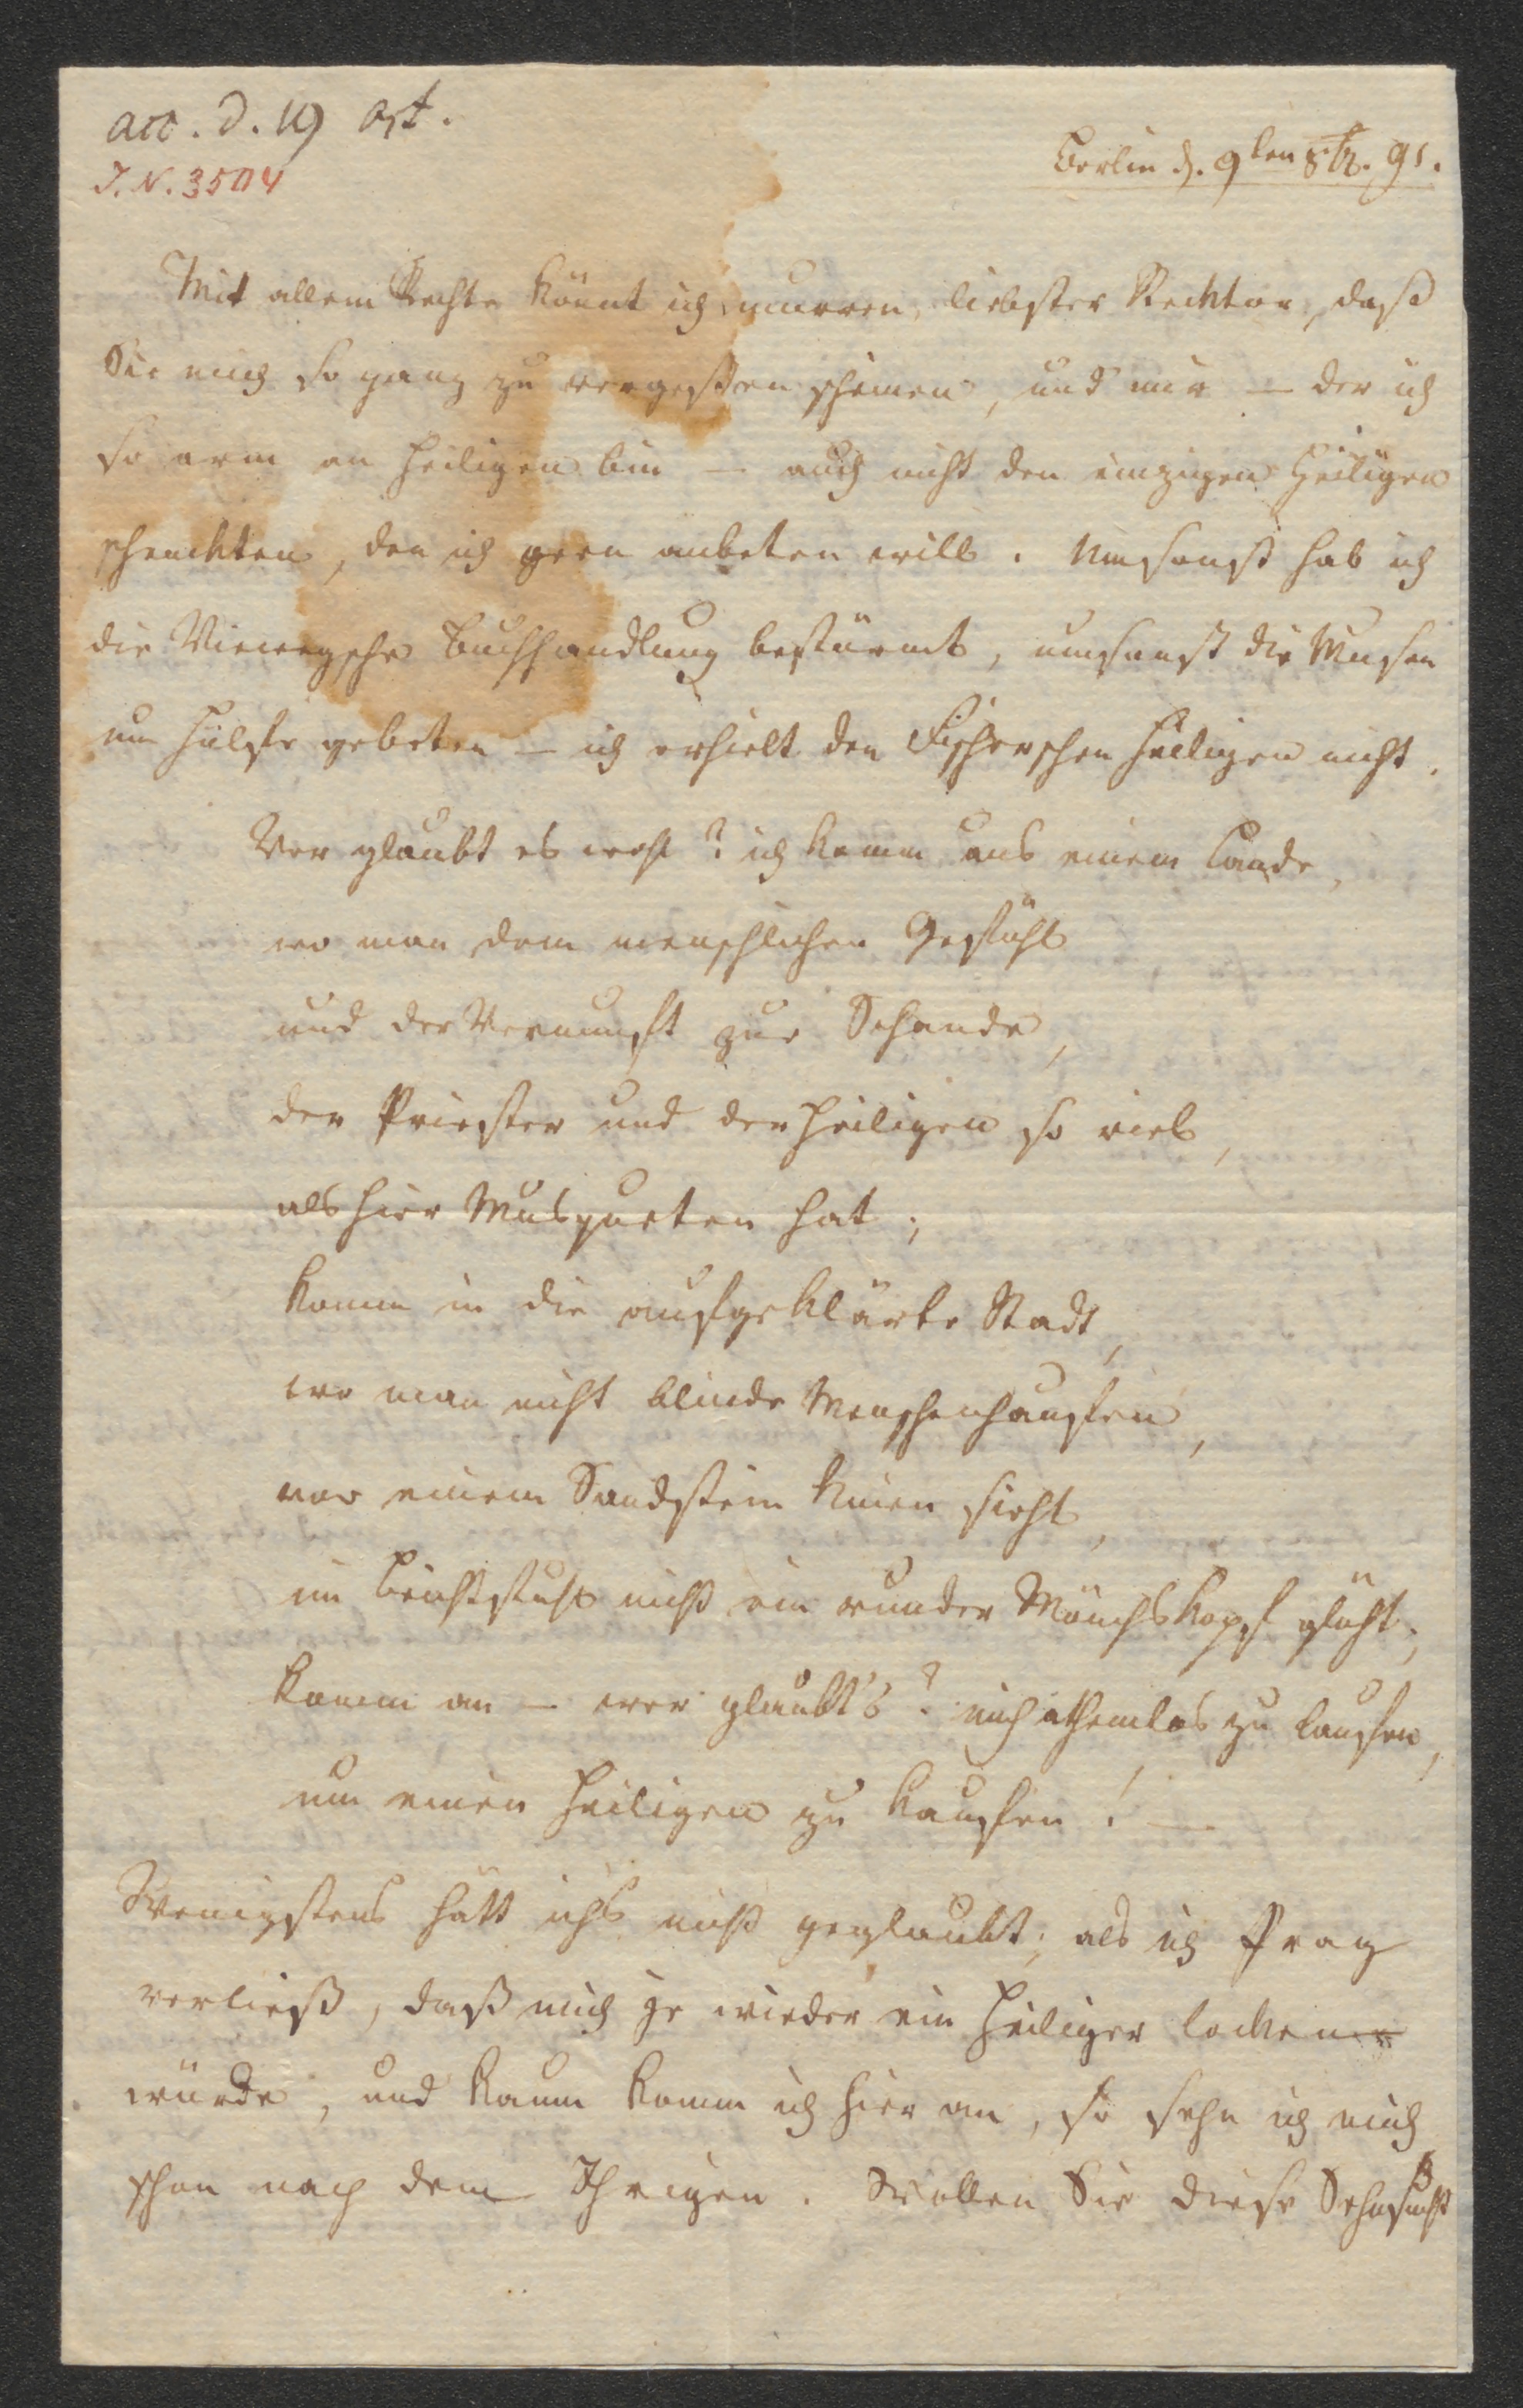 acc. d. 19 Oct.
I.N. 3504
Berlin d. 9ten 8br. 91.
Mit allem Rechte könnt ich murren, liebster Recktor, daß
Sie mich so ganz zu vergeßen scheinen, und mir — der ich
so arm an Heiligen bin — auch nicht den einzigen Heiligen
schenckten, den ich gern anbeten will. Umsonst hab ich
die Viewegsche Buchhandlung bestürmt, umsonst die Musen
um Hülfe gebeten — ich erhielt den Fischerschen Heiligen nicht.
Wer glaubt es wohl? ich komm aus einem Lande,
wo man dem menschlichen Gefühl
und der Vernunft zur Schande,
der Priester und der Heiligen so viel,
als hier Musqueten hat;
komm in die aufgeklärte Stadt,
wo man nicht blinde Menschenhaufen,
vor einem Sandstein knien sieht,
im Beichtstuhl nicht ein runder Mönchskopf glüht;
komm an — wer glaubt's? mich athemlos zu laufen,
um einen Heiligen zu kaufen! —
Wenigstens hätt ichs nicht geglaubt; als ich Prag
verließ, daß mich je wieder ein Heiliger locken
würde, und kaum komm ich hier an, so sehn ich mich
schon nach dem Ihrigen. Wollen Sie diese Sehnsucht